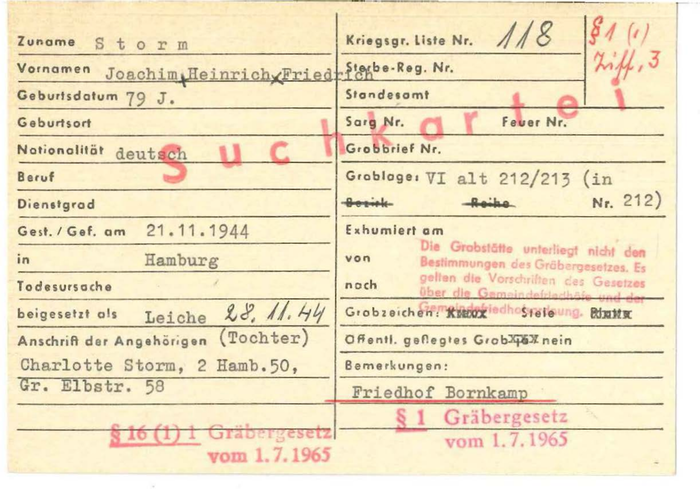 Zuname Storm
Vornamen Joachim Heinrich Friedrich
Geburtsdatum 79 J.
Geburtsort
Nationalität deutsch
Beruf
Dienstgrad
Gest. / Gef. am 21.11.1944
in Hamburg
Todesursache
beigesetzt als Leiche 28.11.44
Anschrift der Angehörigen (Tochter)
Charlotte Storm, 2 Hamb.50,
Gr. Elbstr. 58
§ 16 (1) 1 Gräbergesetz
vom 1.7.1965
Suchkartei
Kriegsgr. Liste Nr. 118
§ 1 (1)
Ziff. 3
Sterbe-Reg. Nr.
Standesamt
Sarg Nr. Feuer Nr.
Grabbrief Nr.
Grablage: VI alt 212/213 (in
Bezirk Reihe Nr. 212)
Exhumiert am
von
nach
Die Grabstätte unterliegt nicht den
Bestimmungen des Gräbergesetzes. Es
gelten die Vorschriften des Gesetzes
über die Gemeindefriedhöfe und der
Gemeindefriedhofsordnung.
Grabzeichen: Kreuz Stele Platte
Öffentl. gepflegtes Grab ja nein
Bemerkungen:
Friedhof Bornkamp
§ 1 Gräbergesetz
vom 1.7.1965